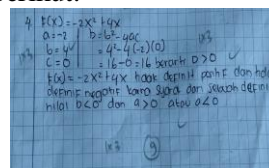 4. f(x) = -2x² + 4x
a = -2 | D = b² - 4ac
b = 4 = 4² - 4(-2)(0)
c = 0 = 16 - 0 = 16 berarti D > 0
f(x) = -2x² + 4x tidak definit positif dan tidak
definit negatif karna syarat dari sebuah definit
nilai D < 0 dan a > 0 atau a < 0
9